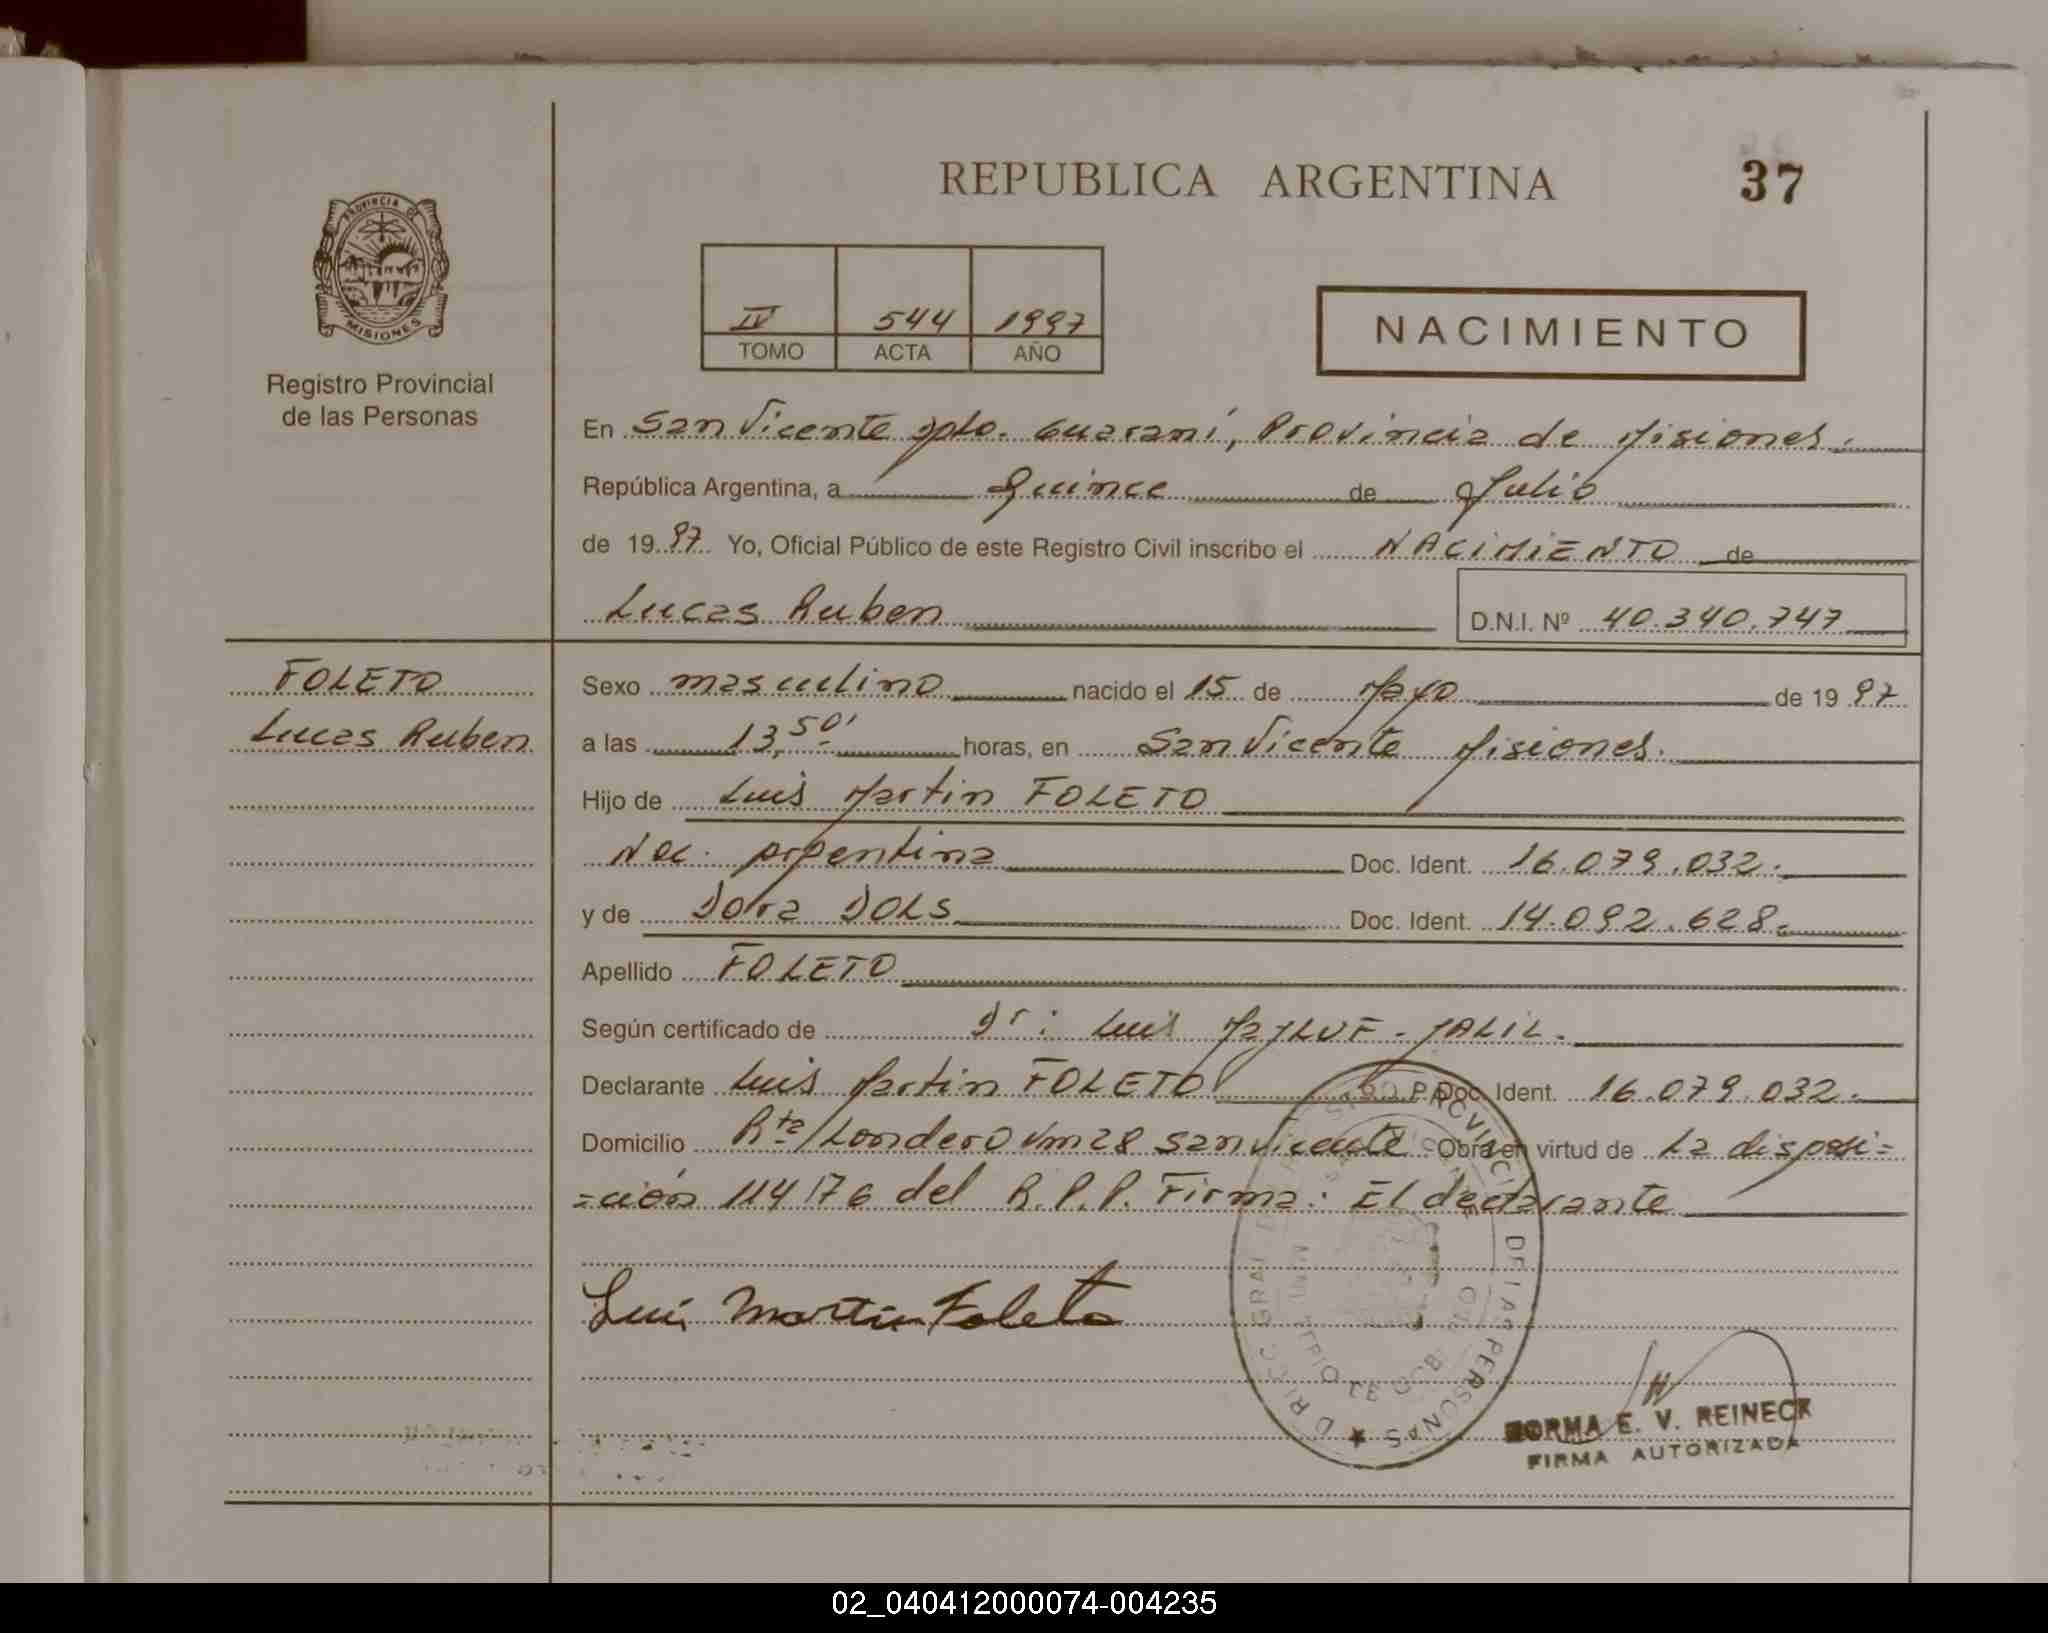 REPUBLICA ARGENTINA
37
PROVINCIA DE
MISIONES
Registro Provincial
de las Personas
IV 544 1997
TOMO ACTA AÑO
NACIMIENTO
En San Vicente Dpto. Guaraní, Provincia de Misiones.
República Argentina, a Quince de Julio
de 19 97 Yo, Oficial Público de este Registro Civil inscribo el NACIMIENTO de
Lucas Ruben
D.N.I. Nº 40.340.747
FOLETO
Lucas Ruben
Sexo masculino nacido el 15 de Mayo de 19 97
a las 13,50' horas, en San Vicente Misiones.
Hijo de Luis Martin FOLETO
Nac. argentina Doc. Ident. 16.079.032.
y de Dora DOLS Doc. Ident. 14.092.628.
Apellido FOLETO
Según certificado de Dr: Luis JALIL.
Declarante Luis Martin FOLETO Doc. Ident. 16.079.032.
Domicilio Rta/Londero Km 28 San Vicente Obra en virtud de La disposi=
=ción 114/76 del R.P.P. Firma: El declarante
Luis Martin Foleto
NORMA E. V. REINECK
FIRMA AUTORIZADA
02_040412000074-004235